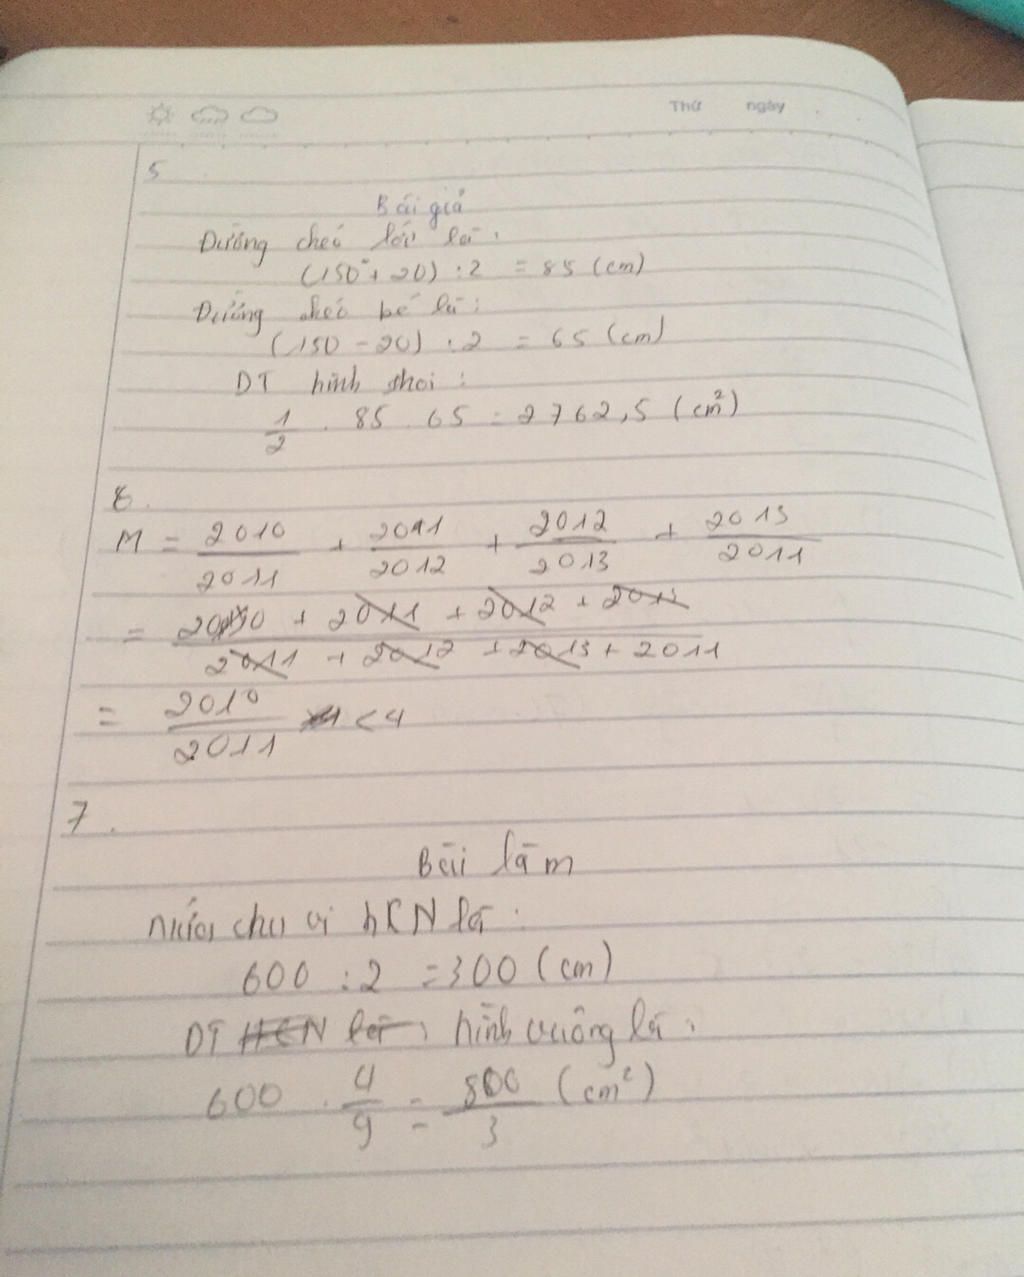 Thứ ngày
5
Bài giả
Đường chéo lớn là:
(150 + 20) : 2 = 85 (cm)
Đường chéo bé là:
(150 - 20) : 2 = 65 (cm)
DT hình thoi :
1/2 . 85 . 65 = 2762,5 (cm²)
6.
M = 2010/2011 + 2011/2012 + 2012/2013 + 2013/2011
= 2010 + 2011 + 2012 + 2013 / 2011 + 2012 + 2013 + 2011
= 2010/2011 < 4
7.
Bài làm
nửa chu vi hCN là :
600 : 2 = 300 (cm)
DT HCN là : hình vuông là :
600 . 4/9 = 800/3 (cm²)